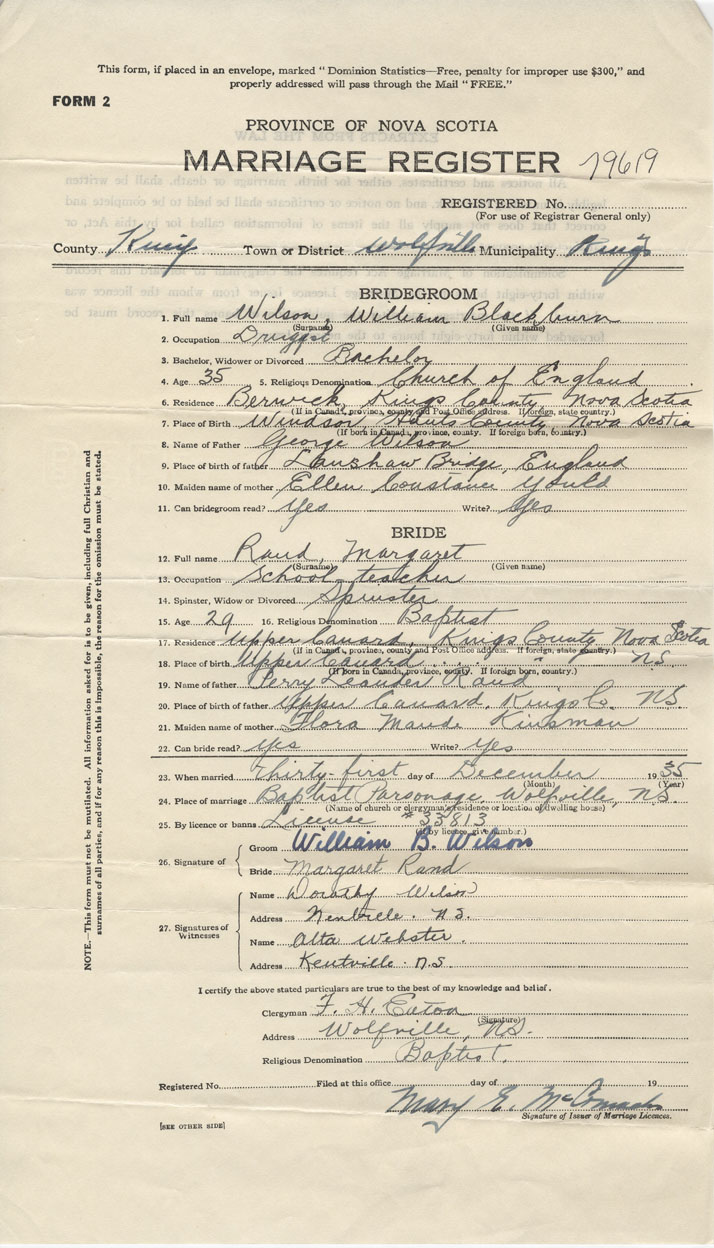 This form, if placed in an envelope, marked "Dominion Statistics—Free, penalty for improper use $300," and
properly addressed will pass through the Mail "FREE."
FORM 2
PROVINCE OF NOVA SCOTIA
MARRIAGE REGISTER 79619
REGISTERED No.
(For use of Registrar General only)
County Kings Town or District Wolfville Municipality Kings
BRIDEGROOM
1. Full name Wilson, William Blackburn
(Surname) (Given name)
2. Occupation Druggist
3. Bachelor, Widower or Divorced Bachelor
4. Age 35 5. Religious Denomination Church of England
6. Residence Berwick, Kings County, Nova Scotia
(If in Canada, province, county and Post Office address. If foreign, state country.)
7. Place of Birth Windsor Hants County Nova Scotia
(If born in Canada, province, county. If foreign born, country.)
8. Name of Father George Wilson
9. Place of birth of father Bridge, England
10. Maiden name of mother Ellen Constance Yould
11. Can bridegroom read? Yes Write? Yes
BRIDE
12. Full name Rand, Margaret
(Surname) (Given name)
13. Occupation School teacher
14. Spinster, Widow or Divorced Spinster
15. Age 29 16. Religious Denomination Baptist
17. Residence Upper Canard, Kings County, Nova Scotia
(If in Canada, province, county and Post Office address. If foreign, state country.)
18. Place of birth Upper Canard " " N.S.
(If born in Canada, province, county. If foreign born, country.)
19. Name of father Perry Leander Rand
20. Place of birth of father Upper Canard, Kings Co. N.S.
21. Maiden name of mother Flora Maude Kinsman
22. Can bride read? Yes Write? Yes
23. When married Thirty-first day of December 1935
(Month) (Year)
24. Place of marriage Baptist Parsonage, Wolfville, N.S.
(Name of church or clergyman's residence or location of dwelling house)
25. By licence or banns License #33813
(If by licence, give number.)
26. Signature of
Groom William B. Wilson
Bride Margaret Rand
27. Signatures of
Witnesses
Name Dorothy Wilson
Address Kentville. N.S.
Name Alta Webster.
Address Kentville. N.S.
I certify the above stated particulars are true to the best of my knowledge and belief.
Clergyman F. H. Eaton
(Signature)
Address Wolfville, N.S.
Religious Denomination Baptist.
Registered No. Filed at this office day of 19
Mary E. McCormack
Signature of Issuer of Marriage Licences.
[SEE OTHER SIDE]
NOTE.—This form must not be mutilated. All information asked for is to be given, including full Christian and
surnames of all parties, and if for any reason this is impossible, the reason for the omission must be stated.